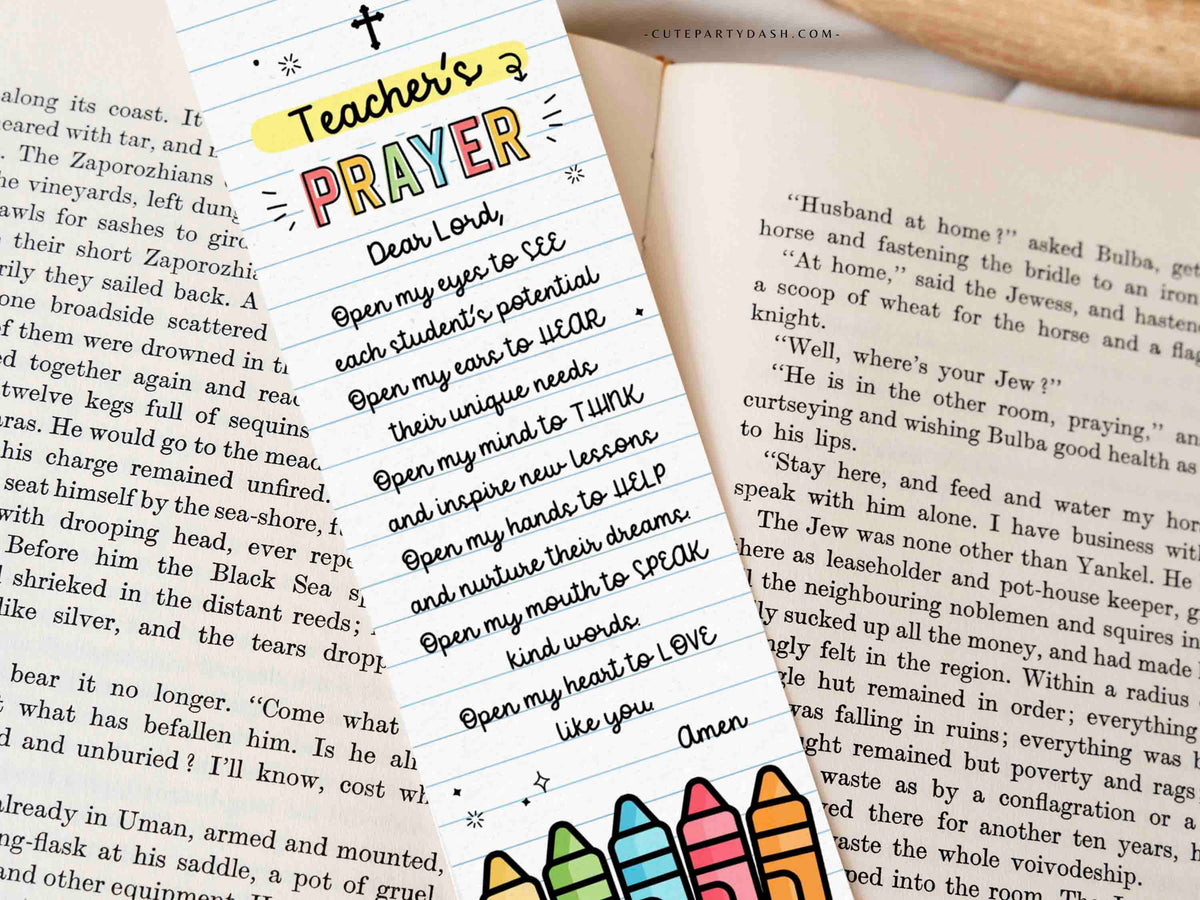 -CUTEPARTYDASH.COM-
along its coast. It
with tar, and
. The Zaporozhians
vineyards, left
for sashes to
their short
they sailed back. A
one broadside scattered
of them were drowned in
together again and
twelve kegs full of sequins
He would go to the
his charge remained unfired.
seat himself by the sea-shore,
with drooping head, ever
Before him the Black Sea
shrieked in the distant reeds;
like silver, and the tears
bear it no longer. “Come what
what has befallen him. Is he
and unburied? I’ll know, cost
already in Uman, armed and mounted,
at his saddle, a pot of gruel
and other equipment.
Teacher's
PRAYER
Dear Lord,
Open my eyes to SEE
each student's potential
Open my ears to HEAR
their unique needs
Open my mind to THINK
and inspire new lessons
Open my hands to HELP
and nurture their dreams.
Open my mouth to SPEAK
kind words.
Open my heart to LOVE
like you.
Amen
“Husband at home?” asked Bulba,
horse and fastening the bridle to an iron
“At home,” said the Jewess, and
a scoop of wheat for the horse and a
knight.
“Well, where’s your Jew?”
“He is in the other room, praying,”
curtseying and wishing Bulba good health as
to his lips.
“Stay here, and feed and water my
speak with him alone. I have business
The Jew was none other than Yankel. He
there as leaseholder and pot-house keeper,
the neighbouring noblemen and squires
sucked up all the money, and had made
felt in the region. Within a radius
hut remained in order; everything
was falling in ruins; everything was
remained but poverty and rags
waste as by a conflagration or a
there for another ten years,
waste the whole voivodeship.
into the room. The